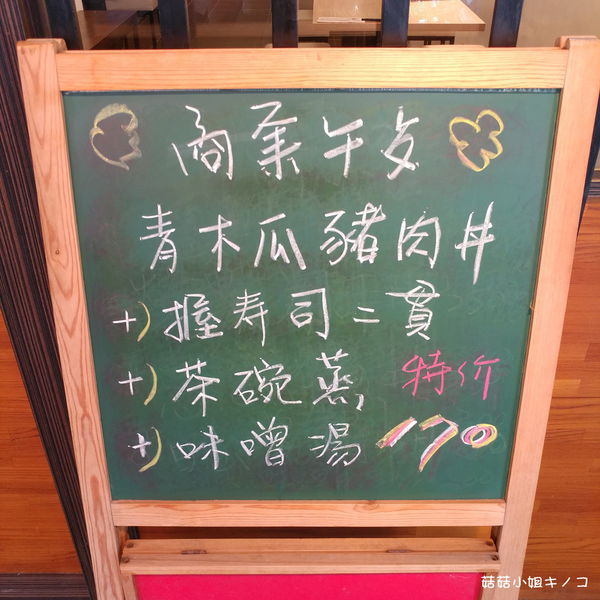 商業午歺
青木瓜豬肉丼
+) 握寿司二貫
+) 茶碗蒸 特价
+) 味噌湯 170
菇菇小姐キノコ